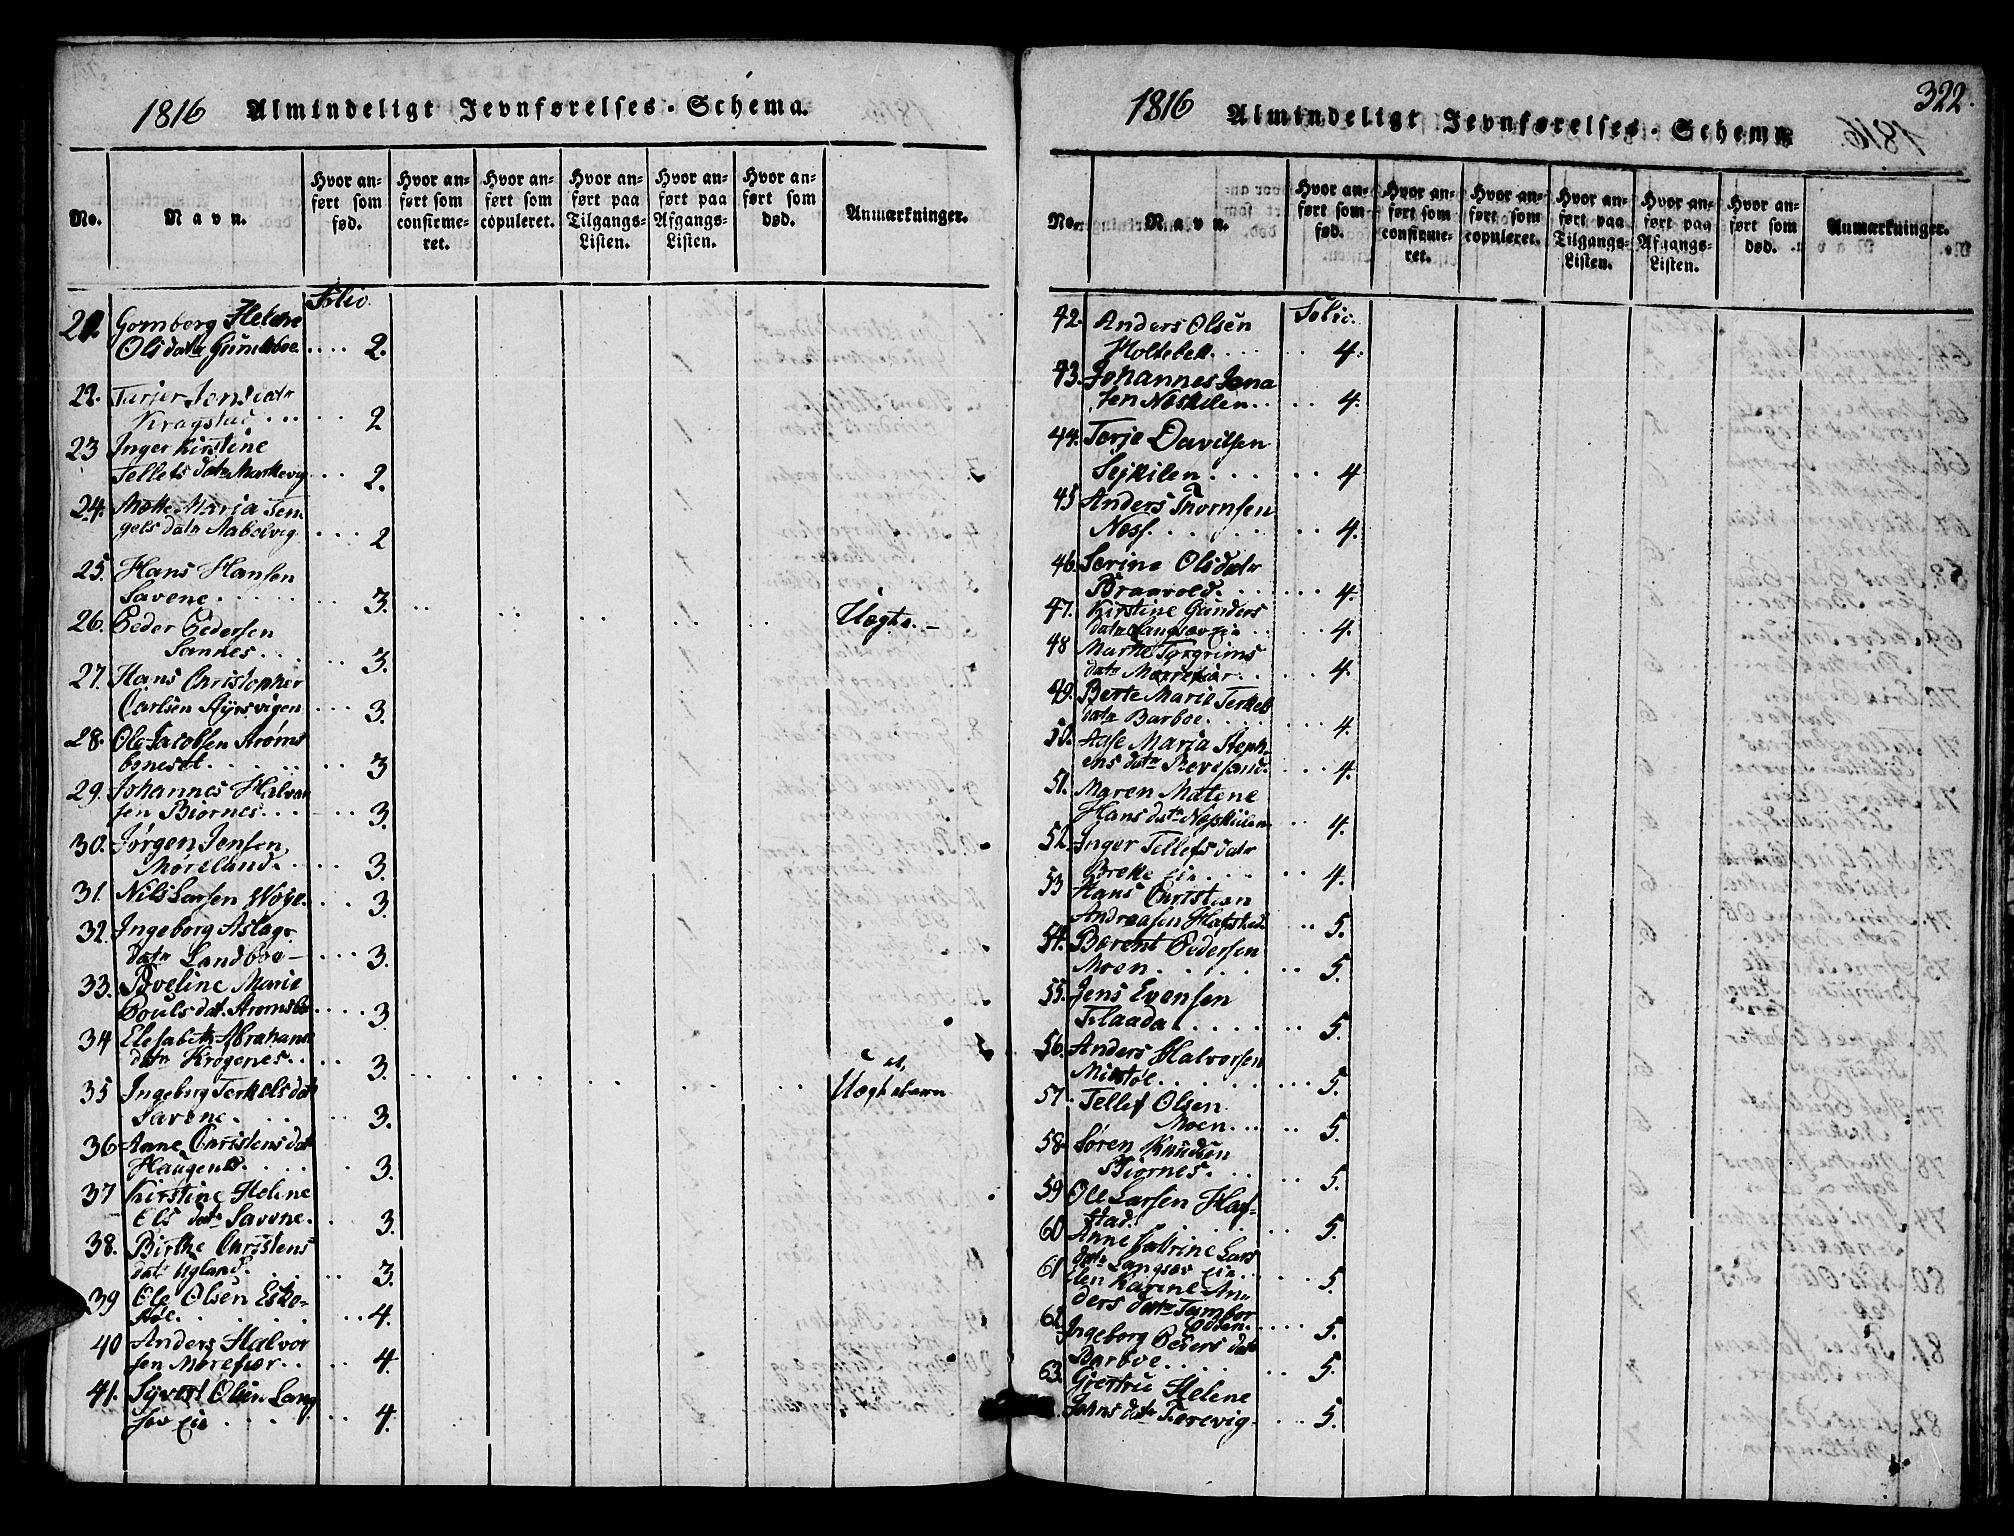 1816 Almindeligt Jevnførelses-Schema.
No.
Navn.
Hvor an-
ført som
fød.
Hvor an-
ført som
confirme-
ret.
Hvor an-
ført som
copuleret.
Hvor an-
ført paa
Tilgangs-
Listen.
Hvor an-
ført paa
Afgangs-
Listen.
Hvor an-
ført som
død.
Anmærkninger.
Folio
21. Gomborg Helene
Olsdatr .... 2.
22. Jensdatr
Kragstad ... 2
23 Inger Kirstine
Tellefs datr Markevig ... 2.
24. Mette Maria Ten
gels datr ... 2
25. Hans Hansen
Savene ..... 3.
26. Peder Pedersen
Sannes ... 3. Uægte.
27. Hans Christopher
Carlsen ... 3.
28. Ole Jacobsen Strøms
boneset ..... 3
29. Johannes Halvor
sen Biørnes ... 3.
30. Jørgen Jensen
Møreland ... 3.
31. Nils Larsen Woje ... 3.
32. Ingeborg Aslags
datr Landboe ... 3.
33. Poveline Marie
Pouls dat. Strømsbo .... 3.
34 Elesabeth Abraham
datr Krogenes ... 3.
35 Ingeborg Terkels dat
Savene ... 3. Uægte barn
36 Anne Christens dat
Haugene .... 3.
37 Kirstine Helene
Els datr Savene ... 3.
38. Birthe Christens
datr Ugland ... 3.
39 Ole Olsen Eske-
støe ..... 4.
40 Anders Halvor
sen Morefier ... 4.
41. Syvert Olsen Lang
sæv Eie .... 4.
1816 Almindeligt Jevnførelses-Schema.
322.
No.
Navn.
Hvor an-
ført som
fød.
Hvor an-
ført som
confirme-
ret.
Hvor an-
ført som
copuleret.
Hvor an-
ført paa
Tilgangs-
Listen.
Hvor an-
ført paa
Afgangs-
Listen.
Hvor an-
ført som
død.
Anmærkninger.
Folio.
42. Anders Olsen
Holtebek .... 4.
43. Johannes Jona
sen Neskilen .. 4.
44. Terje Davidsen
Sejkilen .... 4
45 Anders Thomsen
Ness ..... 4.
46. Serine Olsdatr
Braavold ..... 4.
47. Kirstine Gunders
datr Langsæv Eie ... 4.
48 Marthe Torgrims
datr Morefier ... 4.
49. Berte Marie Terkels
datr Barboe ..... 4.
50. Aase Maria Steph-
ens datr Revesand ... 4.
51. Maren Malene
Hans datr Neskilen .. 4.
52. Inger Tellefs datr
Brekke Eie .... 4.
53 Hans Christian
Andreasen Hafsted .. 5.
54. Berent Pedersen
Moen ...... 5.
55. Jens Evensen
Flaada ..... 5.
56. Anders Halvorsen
Mietøe ...... 5.
57. Tellef Olsen
Moen ... 5.
58. Søren Knudsen
Biornes .... 5.
59 Ole Larsen Haf-
stad ..... 5.
60 Anne Catrine Lars
datr Langsæv Eie ... 5.
61 Elen Karine An
ders datr Tambor
Odden ..... 5.
62. Ingeborg Peders datr
Barboe .... 5.
63. Giertru Helene
Johns datr Torevig ... 5.